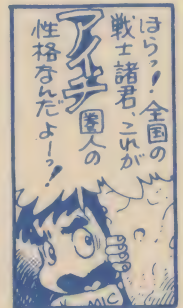 ほらっ!全国の
戦士諸君、これが
アイチ圏人の
性格なんだよーっ!
MIC